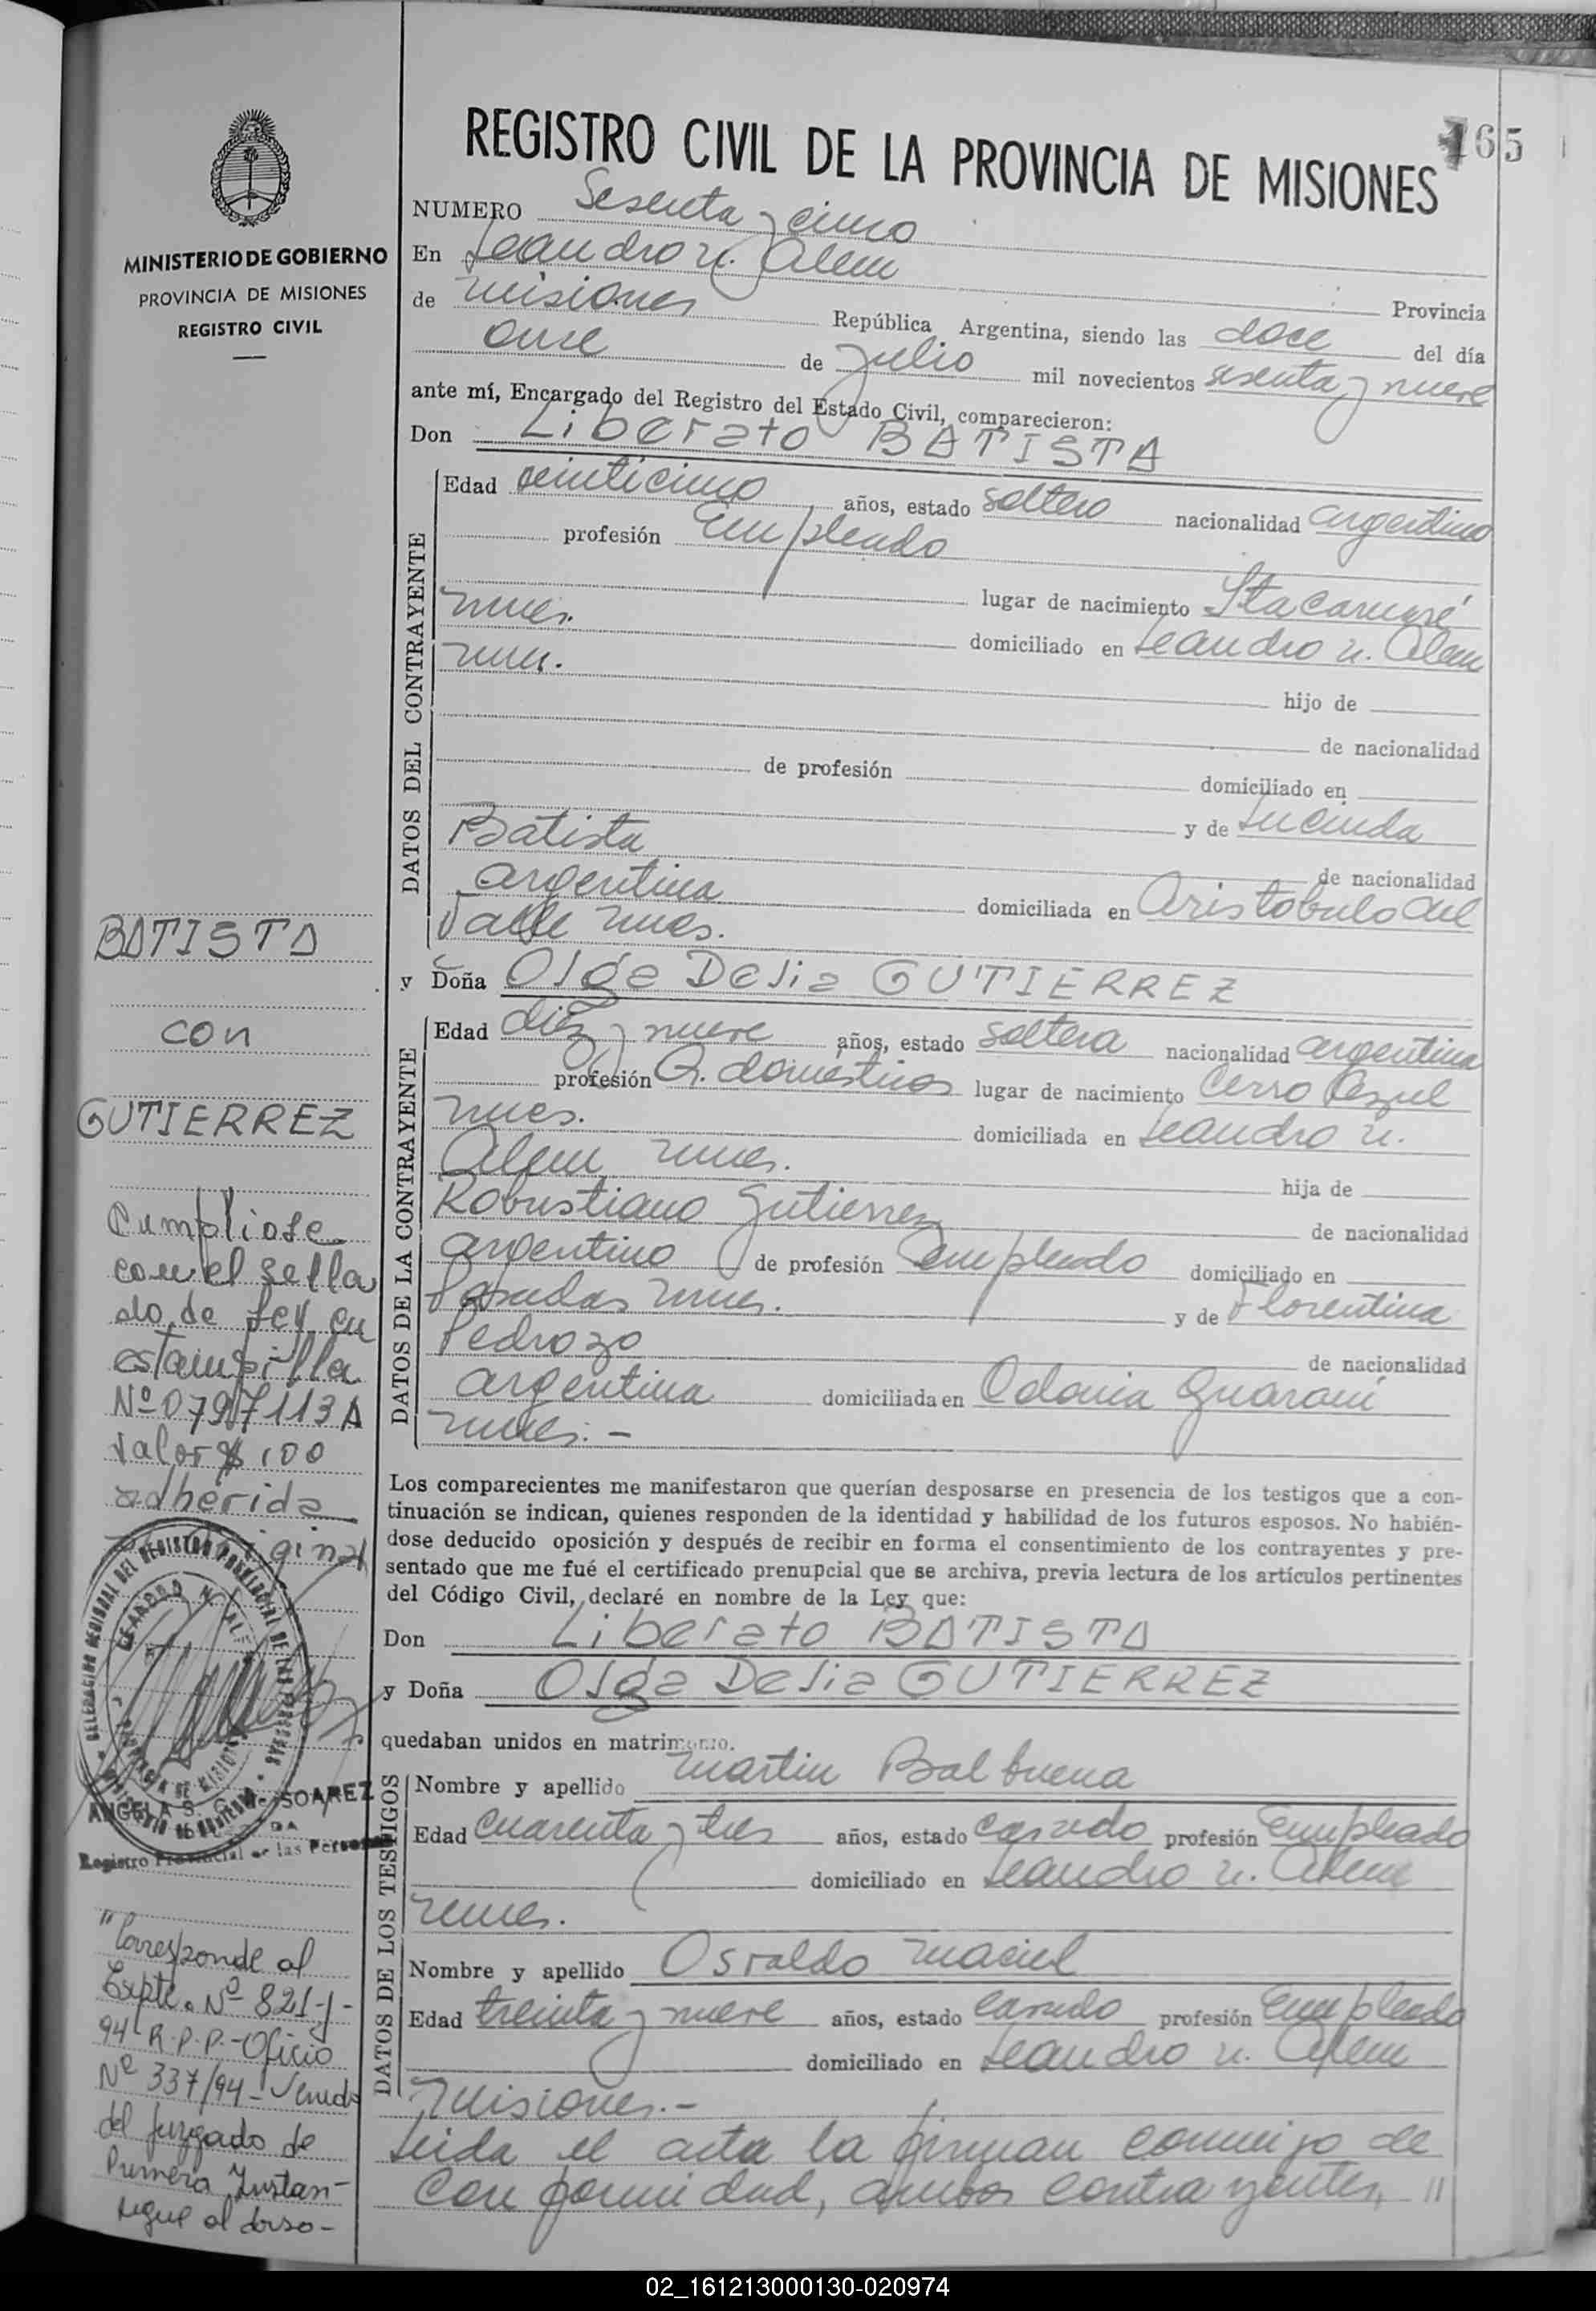 165
REGISTRO CIVIL DE LA PROVINCIA DE MISIONES
MINISTERIO DE GOBIERNO
PROVINCIA DE MISIONES
REGISTRO CIVIL
NUMERO Sesenta y cinco
En Leandro N. Alem Provincia
de Misiones República Argentina, siendo las doce del día
once de Julio mil novecientos sesenta y nueve
ante mí, Encargado del Registro del Estado Civil, comparecieron:
Don Liberato BATISTA
DATOS DEL CONTRAYENTE
Edad veinticinco años, estado soltero nacionalidad argentino
profesión Empleado
lugar de nacimiento Itacaruaré
mnes. domiciliado en Leandro N. Alem
mnes. hijo de
de nacionalidad
de profesión domiciliado en
y de Lucinda
Batista de nacionalidad
argentina domiciliada en Aristobulo del
Valle mnes.
y Doña Olga Delia GUTIERREZ
DATOS DE LA CONTRAYENTE
Edad diez y nueve años, estado soltera nacionalidad argentina
profesión Q. domésticos lugar de nacimiento Cerro Azul
mnes. domiciliada en Leandro N.
Alem mnes. hija de
Robustiano Gutierrez de nacionalidad
argentino de profesión Empleado domiciliado en
Posadas mnes. y de Florentina
Pedrozo de nacionalidad
argentina domiciliada en Colonia Guaraní
mnes. -
Los comparecientes me manifestaron que querían desposarse en presencia de los testigos que a con-
tinuación se indican, quienes responden de la identidad y habilidad de los futuros esposos. No habién-
dose deducido oposición y después de recibir en forma el consentimiento de los contrayentes y pre-
sentado que me fué el certificado prenupcial que se archiva, previa lectura de los artículos pertinentes
del Código Civil, declaré en nombre de la Ley que:
Don Liberato BATISTA
y Doña Olga Delia GUTIERREZ
quedaban unidos en matrimonio.
DATOS DE LOS TESTIGOS
Nombre y apellido Martin Balbuena
Edad cuarenta y tres años, estado casado profesión Empleado
domiciliado en Leandro N. Alem
mnes.
Nombre y apellido Osvaldo Maciel
Edad treinta y nueve años, estado casado profesión Empleado
domiciliado en Leandro N. Alem
Misiones.-
Leida el acta la firman conmigo de
conformidad, ambos contrayentes, //
BATISTA
con
GUTIERREZ
Cumpliose
con el sella
do de Ley en
estampilla
Nº 0797113A
Valor $ 100
adherida
original
DELEGACION REGIONAL DEL REGISTRO PROVINCIAL DE LAS PERSONAS
LEANDRO N. ALEM
PROVINCIA DE MISIONES
MINISTERIO DE GOBIERNO
ANGELA S. SOAREZ
Registro Provincial de las Personas
"Corresponde al
Expte. Nº 821-J-
94 R.P.P.-Oficio
Nº 337/94-
del Juzgado de
Primera Instan-
sigue al dorso-
02_161213000130-020974